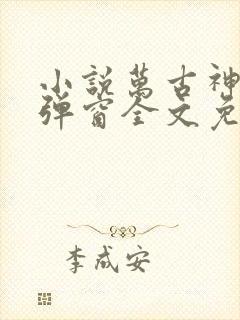 小說萬古神
彈窗全文免
李成安